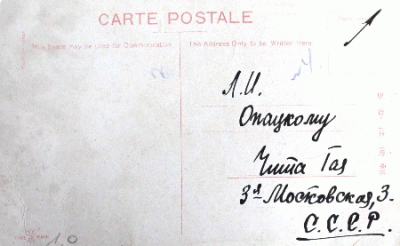 CARTE POSTALE
This Space May be Used for Communication. The Address Only to be Written Here
Л.И.
Опацкому
Чита Iая
3ᴬ Московская, 3.
С.С.С.Р.
10